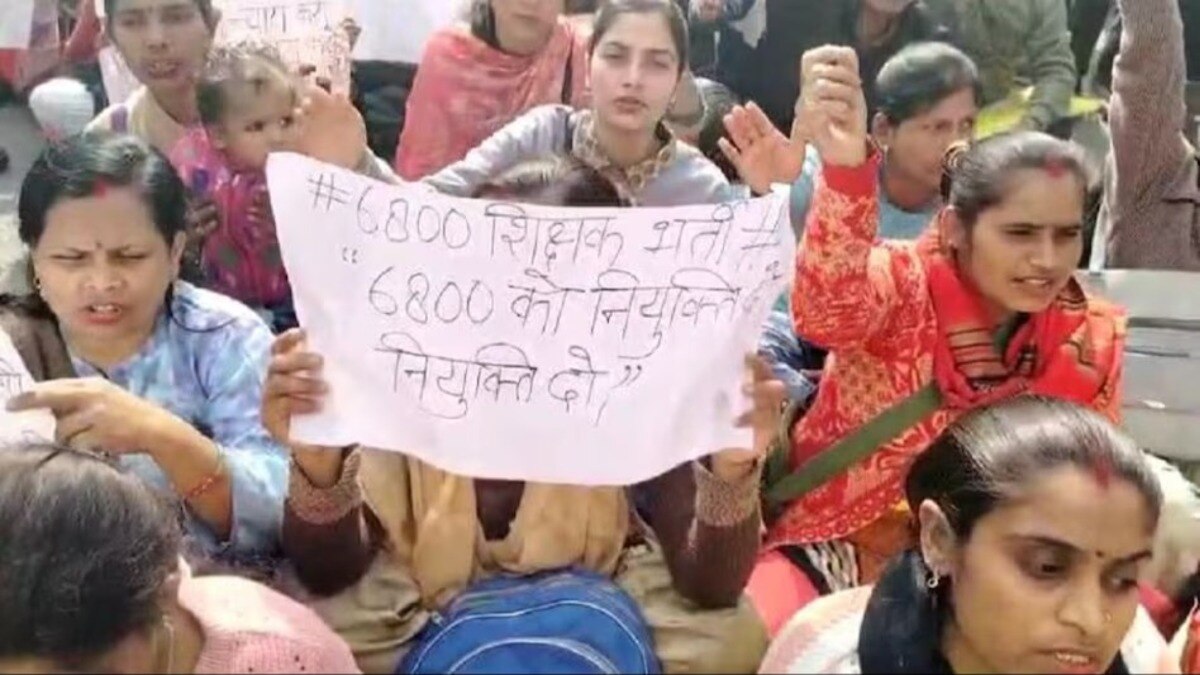 #6800 शिक्षक भर्ती #
“6800 को नियुक्ति दो
नियुक्ति दो”